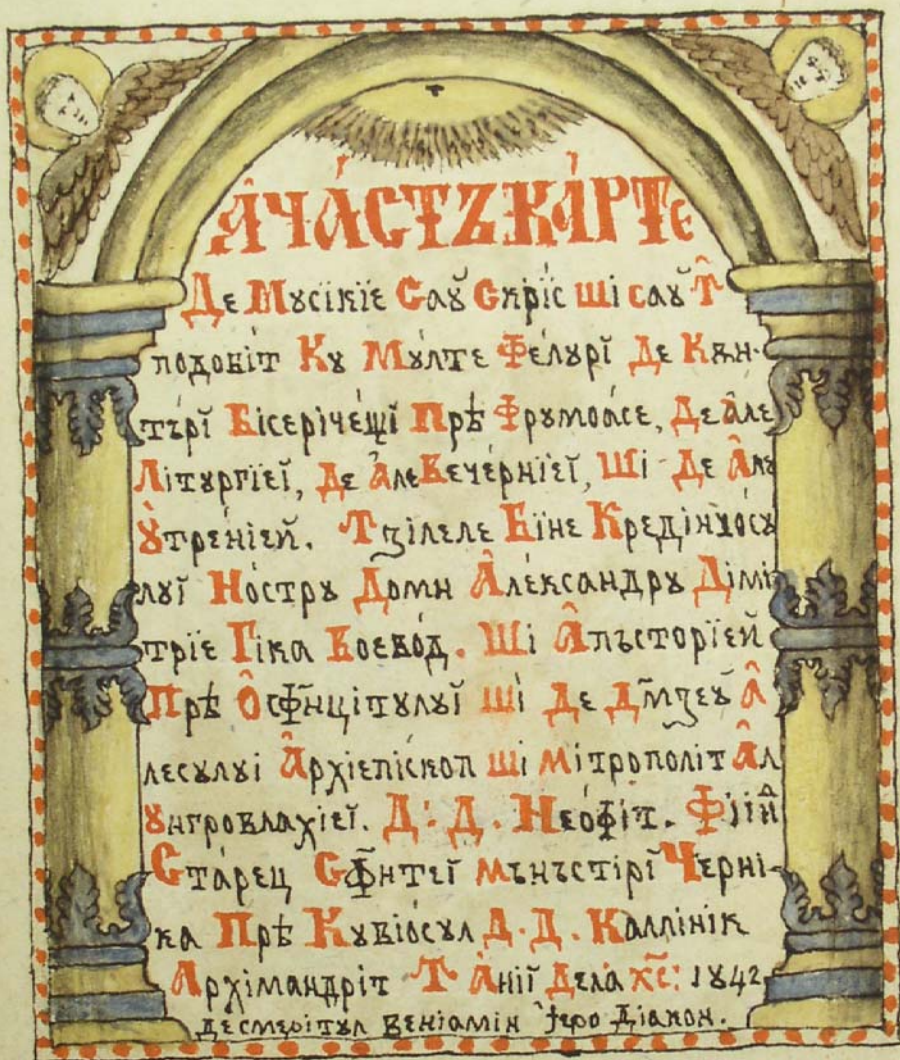 А҆ЧА́СТꙀ КА́РТЕ
Де Мꙋсїкїе Саꙋ Скрі́с ші саꙋ Ꙟ
подобі́т Кꙋ Мꙋ́лте Фе́лꙋрї Де Кѫн-
тъ́рї Бісерічє́щї Прѣ Фрꙋмоа́се, Де але
Літꙋргі́еї, Де але Вече́рнїеї, Ші Де Алꙋ
Ꙋтре́нїей. Ꙟ зілеле Бі́не Кредінчо́сꙋ
лꙋї Но́стрꙋ Домн Алеѯа́ндрꙋ Дімі
трі́е Гі́ка Воево́д. Ші Апъсторі́ей
Прѣ Ѻсфи҃нці́тꙋлꙋї Ші Де Дм҃незеꙋ А
ле́сꙋлꙋї Архїепі́скоп ші Мі́трополі́т Ал
Ꙋнгровла́хїеї. Д: Д. Нео́фіт. Фіі́н
Ста́рец Сфи҃нтеї Мънъсті́рї Черні-
ка Прѣ Кꙋвіо́сꙋл Д. Д. Каллі́нік
Архїмандрі́т Ꙟ А́нїї Дела хс҃: 1842
де смері́тꙋл Веніамі́н Їеро Діа́кон.